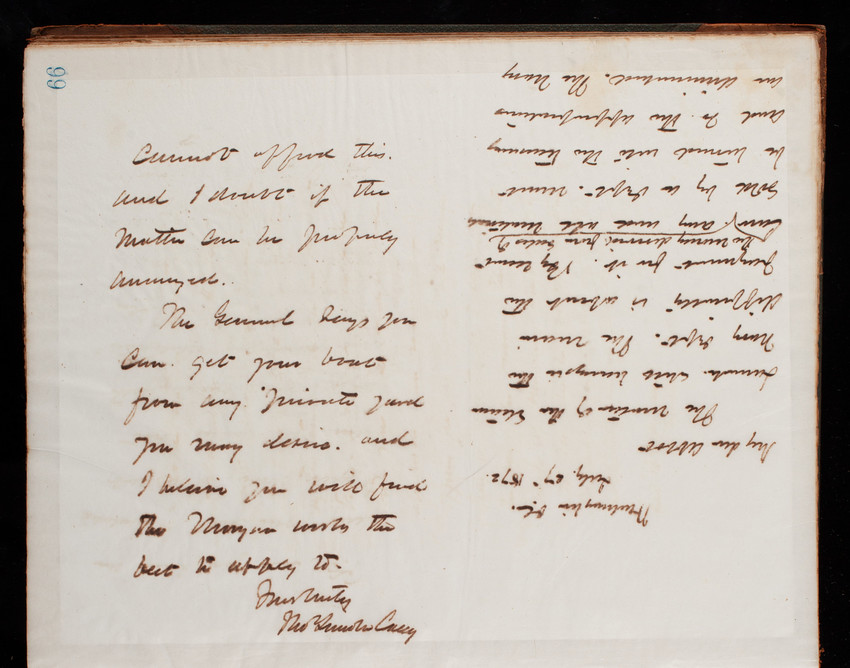 Washington D.C.
July 27th 1872.
My dear Abbot
The matter of the Steam
Launch still hangs in the
Navy Dept. The main
difficulty is about the
payment for it. By
the money derived from sales of
any and all material
sold by a Dept. must
be turned into the Treasury
and so the appropriations
are diminished. The Navy
cannot afford this.
and I doubt if the
matter can be properly
arranged.
The General says you
can get your boat
from any private yard
you may desire. and
I believe you will find
the Morgan works the
best to apply to.
Yours truly
Thos Lincoln Casey